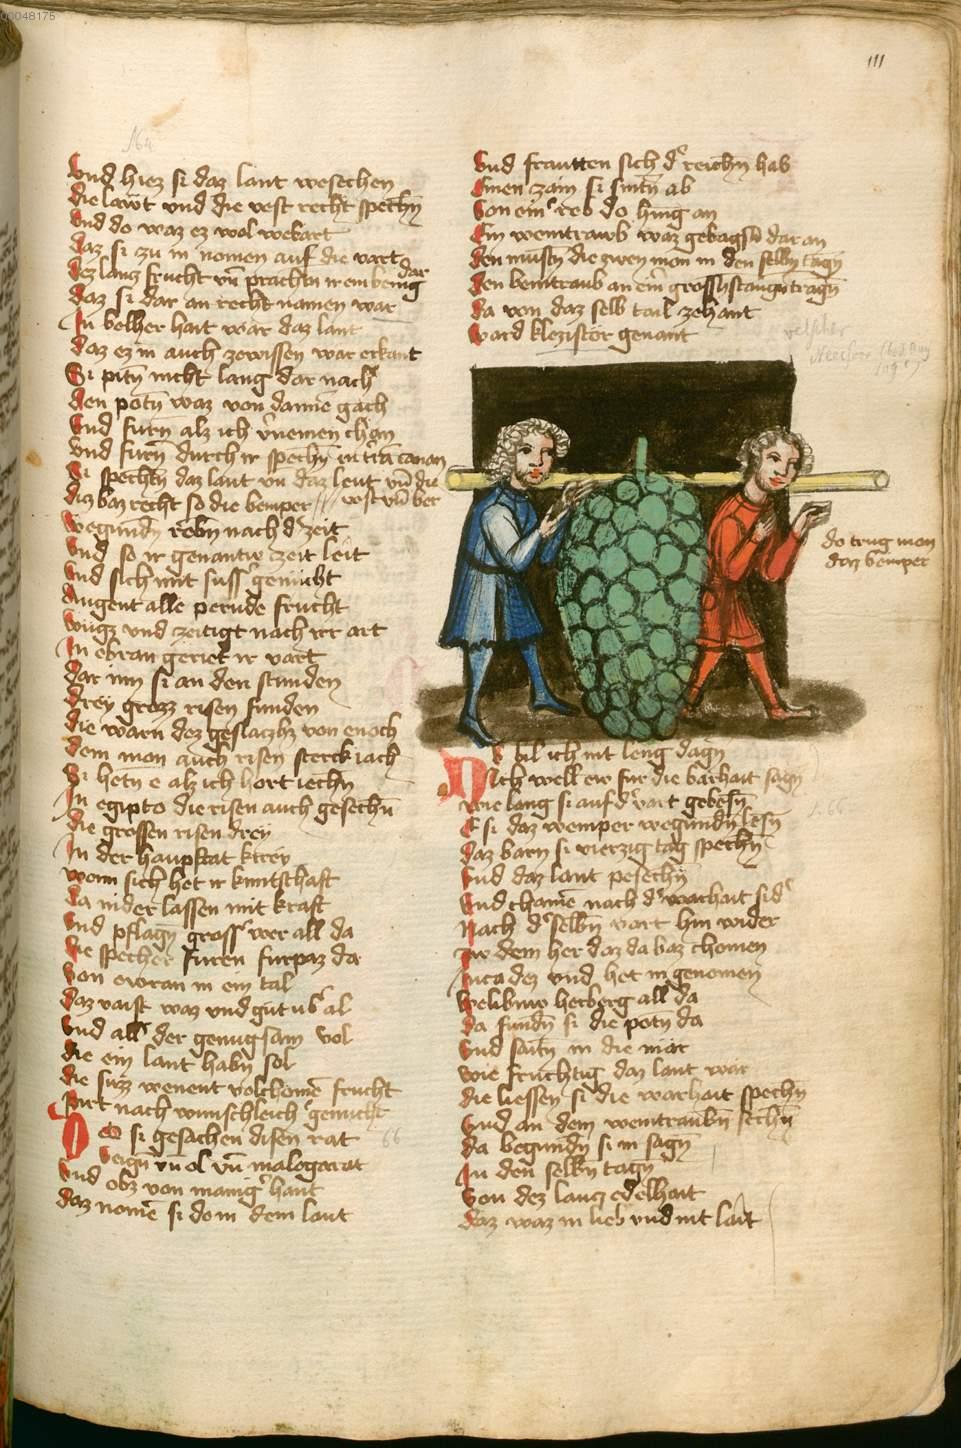 00048175
111
164
Vnd hiez si daz lant wesechen
die lawt vnd die vest recht spechn̄
Vnd do waz ez wol wekart
daz si zu in nomen auf die vart
dez lanz frucht vn̄ prachtn ir ein benig
dar
daz si dar an recht namen war
In belher hait war daz lant
daz ez in auch zewissen war erkant
Si pitn̄ nicht lang dar nach
den potn̄ waz von danne gach
Vnd furn̄ alz ich v̓nemen chan
vnd furn̄ durch ir spechn̄ in tra canaan
Si spechtn̄ daz lant vn daz leut vn̄ die
vest vn̄ ber
diz baz recht so die bemper
wegundn̄ rebn̄ nach d̓ zeit
Vnd so ir genantw zeit leit
vnd sich mit suss̓ genucht
Augent alle pernde frucht
wugz vnd zeitigt nach irr art
In ebran geriet ir vart
dar inn si an den stunden
drey grozz risen funden
die warn dez geslachz von enoch
dem mon auch risen sterck iach
Si hetn e alz ich hort iechn
In egipto die risen auch gesechn̄
die grossen risen drey
In der haupstat
wann sich het ir kuntschaft
da nider lassen mit kraft
vnd pflagn̄ gross̓ wer all da
die specher furen furpaz da
Von ewran in ein tal
daz vaist waz vnd gut vb̓ al
vnd all̓ der genugsam vol
die ein lant habn̄ sol
die suzz wenent volchome frucht
pirt nach wunschleich̓ genucht
Do si gesachen disen rat 66
veign vn ol vn̄ malogarat
Vnd obz von manig̓ hant
daz nome si do in dem lant
Vnd frautten sich d̓ reichn̄ hab
Einen zain si snitn̄ ab
Von ein̓ reb do hing an
Ein weintrawb waz gebagsn̄ dar an
den mustn̄ die zwen mon in den selbn̄ tagn̄
den beintraub an ein̓ grossn̄ stangn tragn̄
da von daz selb tail zehant
ward klezistor genant
do trug man
daz bemper
Nv wil ich nit leng dagn̄
Sich well ew fur die barhait sagn̄
wie lang si auf d̓ vart gebesn̄
E si daz wemper wegundn̄ lesn̄
daz barn si vierzig tag spechn̄
Vnd daz lant pesechn̄
Vnd chame nach d̓ warhait sid̓
Nach d̓ selbn̄ vart hin wider
zw dem her daz da baz chomen
Inca dez vnd het in genomen
welibnw herberg all da
da fundn̄ si die potn̄ da
Vnd saitn̄ in die mär
wie fruchtig daz lant wär
die liessen si die warhait spechn̄
Vnd an dem weintraubn̄ sechn̄
da begundn̄ si in sagn̄
In den selbn̄ tagn̄
Von dez lanz edelhait
daz waz in lieb vnd nit lait